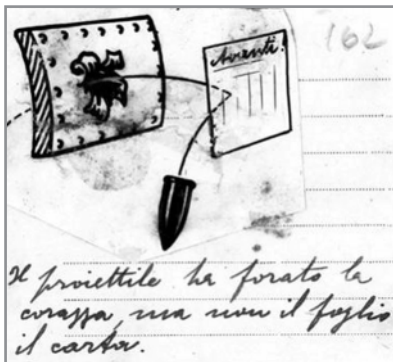 162
Avanti!
Il proiettile ha forato la
corazza, ma non il foglio
il carta.